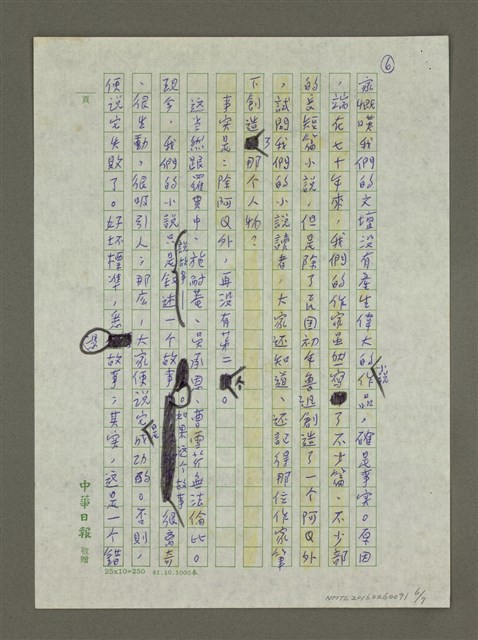 ⑥
家慨嘆我們的文壇沒有產生偉大的作品，確是事實。原因
，端在七十年來，我們的作家雖然寫了不少篇、不少部
的長短篇小說，但是除了民國初年魯迅創造了一個阿Q外
，試問我們的小說讀者，大家还知道、还記得那位作家筆
下創造了那个人物？
事实是：除阿Q外，再沒有第二个。
这当然跟羅貫中、施耐菴、吳承恩、曹雪芹無法倫比。
現今，我們的小說只是敘述一个故事。如果这个故事很离奇
說故事
、很生動，很吸引人；那広，大家便說它是成功的。否則，
便說它失敗了。好坏標準，悉憑故事；其实，这是一个錯
頁
中華日報 敬贈
25x10=250 81.10.1000本
NMTL20160260091 6/7